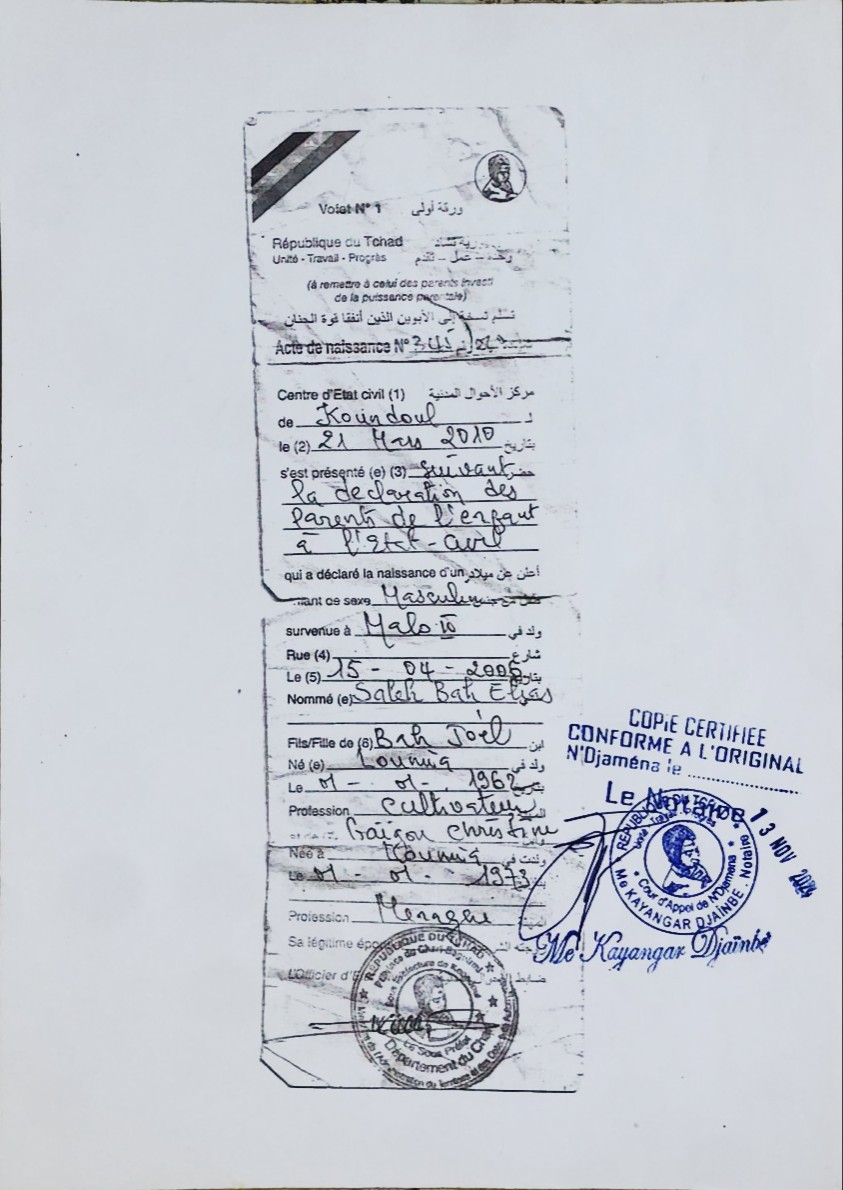 Volet N° 1 ورقة أولى
République du Tchad جمهورية تشاد
Unité - Travail - Progrès وحدة – عمل – تقدم
(à remettre à celui des parents investi
de la puissance parentale)
Acte de naissance N°
Centre d'Etat civil (1) مركز الأحوال المدنية
de Koundoul لـ
le (2) 21 Mars 2010 بتاريخ
s'est présenté (e) (3) suivant حضر
la declaration des
Parents de l'enfant
à l'Etat-Civil
qui a déclaré la naissance d'un أعلن عن ميلاد
enfant de sexe Masculin
survenue à Malo ولد في
Rue (4) شارع
Le (5) 15 - 04 - 2006 بتاريخ
Nommé (e) Saleh Bah Elias
Fils/Fille de (6) Bah Joël ابن
Né (e) Koumra ولد في
Le 01 - 01 - 1962
Profession Cultivateur
Christine
Née à Koumra ولدت في
Le 01 - 01 - 1973
Profession Menagère
Sa légitime épouse
L'Officier d'E
REPUBLIQUE DU TCHAD
Le Sous Préfet
Département du Chari
COPIE CERTIFIEE
CONFORME A L'ORIGINAL
N'Djaména le
Le Notaire
13 NOV 2024
REPUBLIQUE DU TCHAD
Unité Travail Progrès
Cour d'Appel de N'Djamena
Me KAYANGAR DJAÏNBE - Notaire
Me Kayangar Djaïnbe